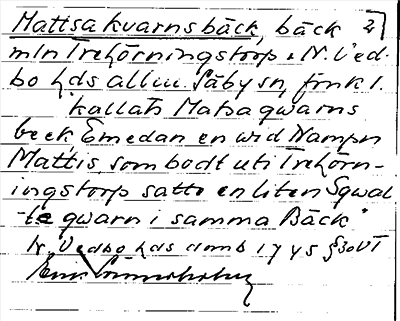 Mattsa kvarnsbäck, bäck 2)
mln Trehörningstorp o N. Ved-
bo hds allm. Säby sn, fmk 1.
"kallats Matsa qwarns
beck Emedan en wid Nampn
Mattis som bodt uti Trehörn-
ingstorp satte en liten Sqwal
te qwarn i samma Bäck"
N. Vedbo hds domb 1745 § 30 VT